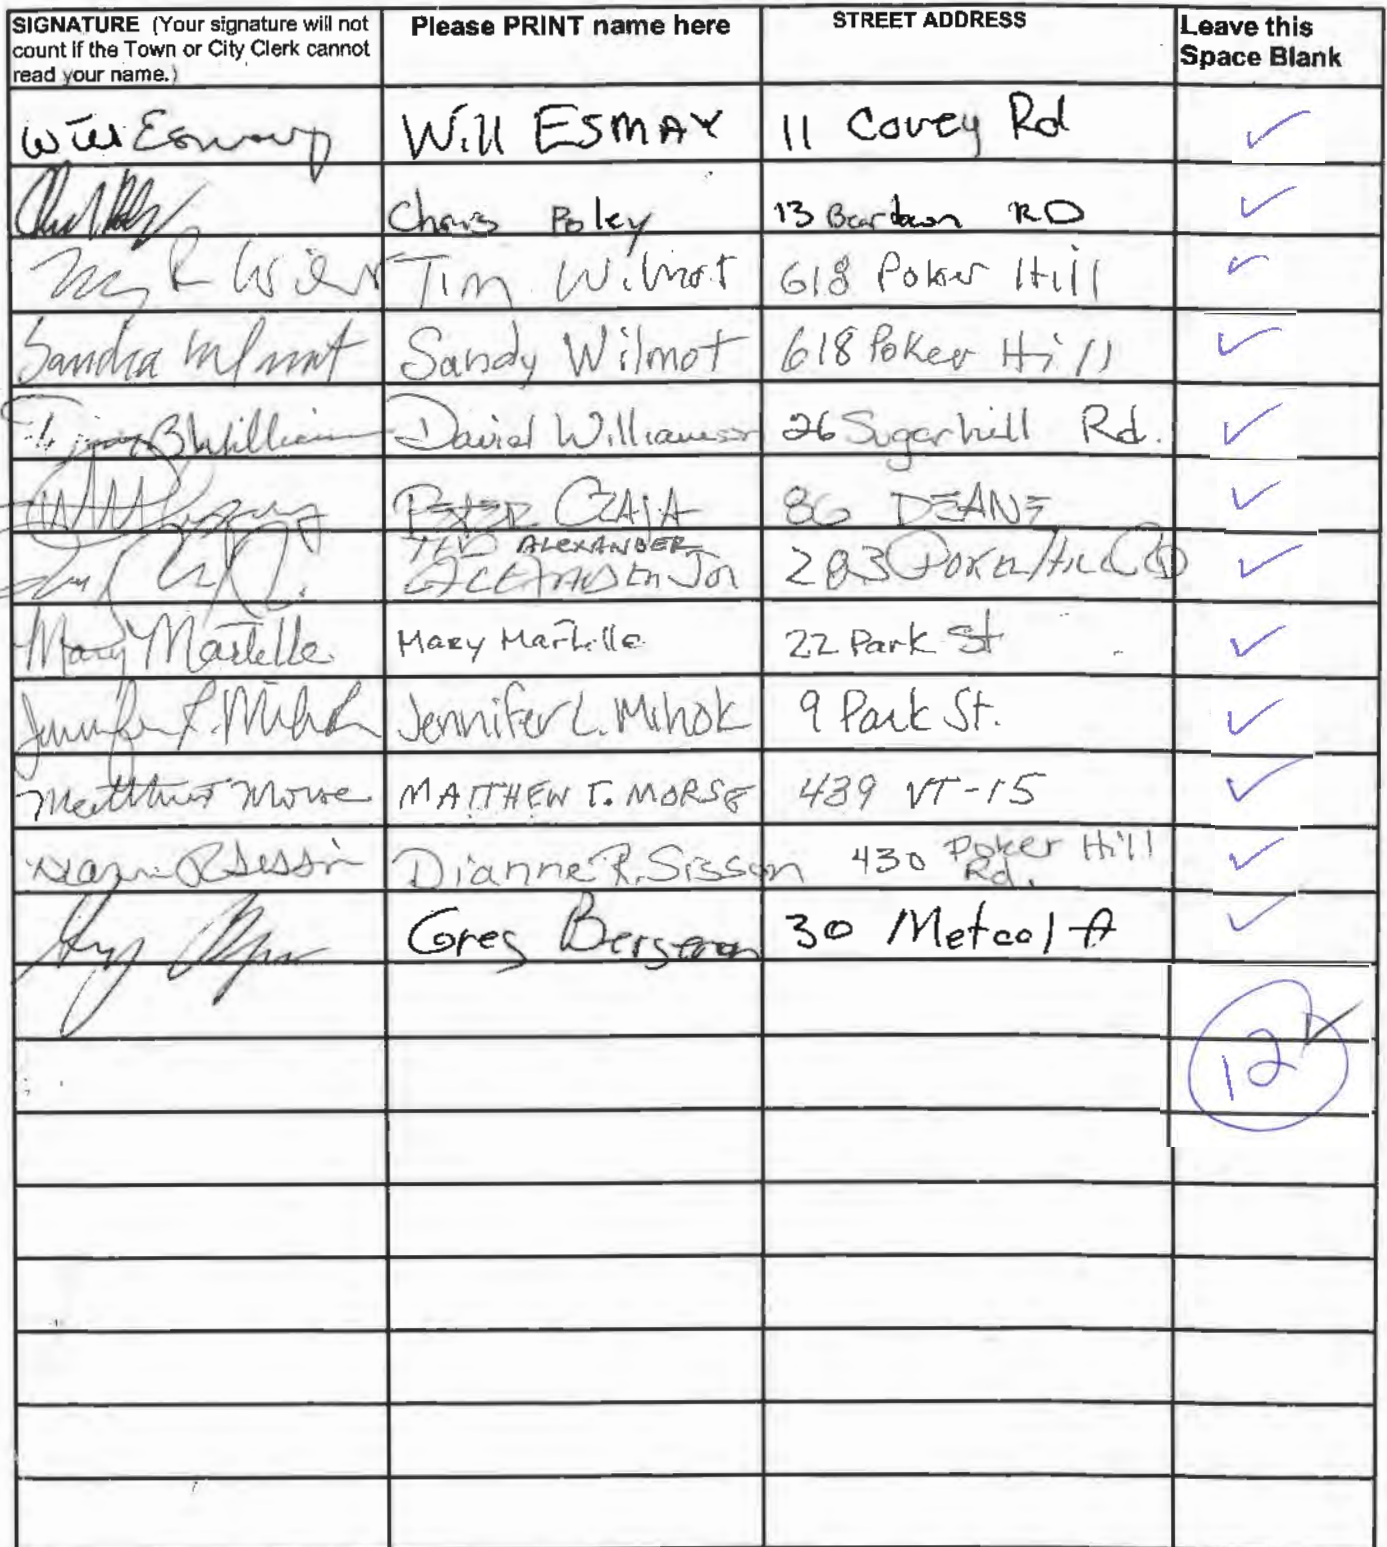 SIGNATURE (Your signature will not count if the Town or City Clerk cannot read your name.) Please PRINT name here STREET ADDRESS Leave this Space Blank
Will Esmay Will ESMAY 11 Covey Rd ✓
Chris 13 RD ✓
Tim Wilmot 618 Poker Hill ✓
Sandra Wilmot Sandy Wilmot 618 Poker Hill ✓
David Williamson 26 Sugarhill Rd. ✓
PETER CZAJA 86 DEANE ✓
TED ALEXANDER
283 Poker Hill Rd ✓
Mary Martelle Mary Martelle 22 Park St ✓
Jennifer L. Mihok Jennifer L. Mihok 9 Park St. ✓
Matthew Morse MATTHEW T. MORSE 439 VT-15 ✓
Dianne R. Sisson 430 Poker Hill Rd. ✓
Greg Bergeron 30 Metcalf ✓
12 ✓